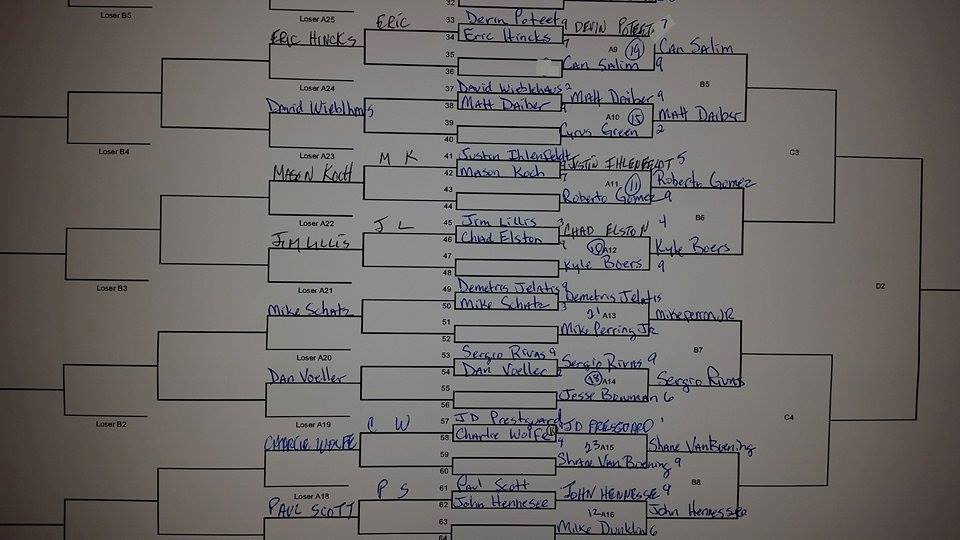 32
Loser B5
Loser A25
ERIC
33 Devin Poteet 9 DEVIN POTEET 7
ERIC HINCKS
34 Eric Hincks 7
A9 19 Can Salim
35
36 Can Salim 9
B5
Loser A24
37 David Wieblehaus 2 Matt Daiber 9
David Wieblhaus
38 Matt Daiber
A10 15 Matt Daiber
39
40 Cyrus Green 2
Loser B4
Loser A23
C3
M K
41 Justin Ihlenfeldt JUSTIN IHLENFELDT 5
MASON KOCH
42 Mason Koch 7
A11 11 Roberto Gomez
43
44 Roberto Gomez 9
B6
Loser A22
J L
45 Jim Lillis 3 CHAD ELSTON 4
JIM LILLIS
46 Chad Elston
10 A12 Kyle Boers
47
48 Kyle Boers 9
Loser B3
Loser A21
D2
49 Demetris Jelatis 9 Demetris Jelatis
Mike Schatz
50 Mike Schatz 3
21 A13 Mike perring JR
51
52 Mike Perring JR
B7
Loser A20
53 Sergio Rivas 9 Sergio Rivas 9
Dan Voeller
54 Dan Voeller
18 A14 Sergio Rivas
55
56 Jesse Bowman 6
Loser B2
Loser A19
C4
C W
57 JD Prestguard JD PRESGUARD 1
CHARLIE WOLFE
58 Charlie Wolfe 4
23 A15 Shane VanBoening
59
60 Shane Van Boening 9
B8
Loser A18
P S
61 Paul Scott JOHN HENNESSE 9
PAUL SCOTT
62 John Hennesee
12 A16 John Hennessee
63
64 Mike Dunklin 6